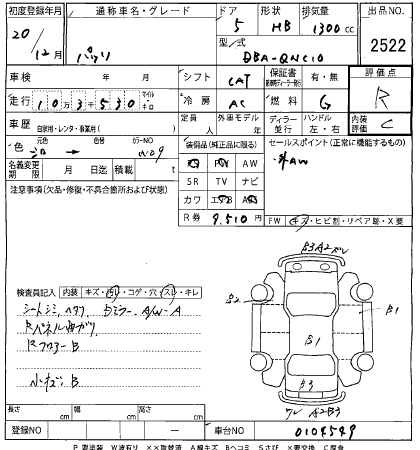 初度登録年月 通称車名・グレード ドア 形状 排気量 出品NO.
20/12月 パッソ 5 HB 1300cc
型/式 DBA-QNC10 2522
車検 年 月 シフト CAT 保証書 有・無 評価点
走行 103530 マイル キロ 冷房 AC 燃料 G R
車歴 自家用・レンタ・事業用( ) 定員 人 外車モデル 年 ディーラー 並行 ハンドル 左・右 内装評価 C
色 元色 色替 カラーNO W09
装備品(純正品に限る) セールスポイント(正常に機能するもの)
名義変更期限 月 日 車歴 年 積載 t
PS PW AW
社外AW
SR TV ナビ
注意事項(欠品・修復・不具合箇所および状態)
カワ エアB ABS
R券 9.510円
FW キズ・ヒビ割・リペア跡・X要
検査員記入 内装 キズ・汚レ・コゲ・穴・スレ・キレ
シートシミ、ヘタリ
Rパネル曲ガリ
Rフロアー B
小キズ、B
ドミラーA
A/W-A
B2
B1
B1
B3
A2B3
長さ cm 幅 cm 高さ cm
登録NO ― 車台NO 0104549
P要塗装 W波有リ XX取替済 A線キズ Bヘコミ Sさび X要交換 C腐食